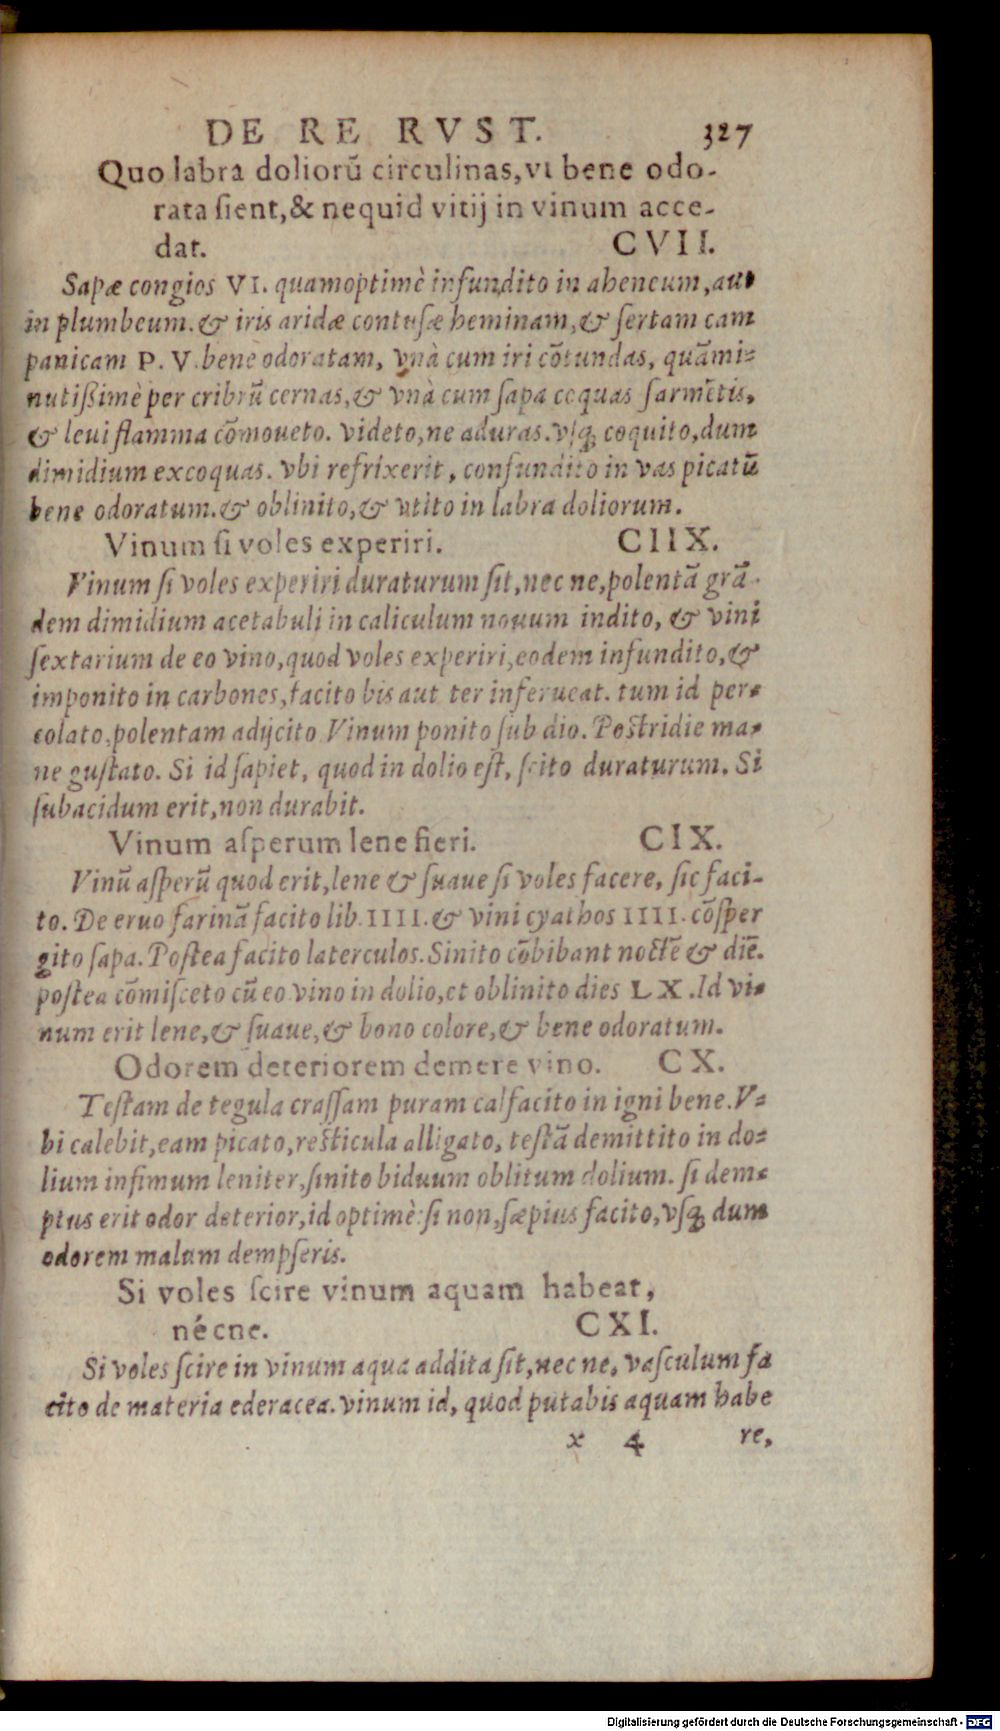 DE RE RVST. 327
Quo labra doliorū circulinas, vt bene odo-
rata sient, & nequid vitij in vinum acce-
dat. CVII.
Sapæ congios VI. quamoptimè infundito in aheneum, aut
in plumbeum. & iris aridæ contusæ heminam, & sertam cam
panicam P. V. bene odoratam, vnà cum iri cōtundas, quāmi-
nutißimè per cribrū cernas, & vnà cum sapa coquas sarmētis,
& leui flamma cōmoueto. videto, ne aduras. vsq; coquito, dum
dimidium excoquas. vbi refrixerit, confundito in vas picatū
bene odoratum. & oblinito, & vtito in labra doliorum.
Vinum si voles experiri. CIIX.
Vinum si voles experiri duraturum sit, nec ne, polentā grā-
dem dimidium acetabuli in caliculum nouum indito, & vini
sextarium de eo vino, quod voles experiri, eodem infundito, &
imponito in carbones, facito bis aut ter inferueat. tum id per-
colato, polentam adijcito. Vinum ponito sub dio. Postridie ma-
ne gustato. Si id sapiet, quod in dolio est, scito duraturum. Si
subacidum erit, non durabit.
Vinum asperum lene fieri. CIX.
Vinū asperū quod erit, lene & suaue si voles facere, sic faci-
to. De eruo farinā facito lib. IIII. & vini cyathos IIII. cōsper
gito sapa. Postea facito laterculos. Sinito cōbibant noctē & diē.
postea cōmisceto cū eo vino in dolio, et oblinito dies LX. Id vi-
num erit lene, & suaue, & bono colore, & bene odoratum.
Odorem deteriorem demere vino. CX.
Testam de tegula crassam puram calfacito in igni bene. V-
bi calebit, eam picato, resticula alligato, testā demittito in do-
lium infimum leniter, sinito biduum oblitum dolium. si dem-
ptus erit odor deterior, id optimè: si non, sæpius facito, vsq; dum
odorem malum dempseris.
Si voles scire vinum aquam habeat,
nécne. CXI.
Si voles scire in vinum aqua addita sit, nec ne, vasculum fa
cito de materia ederacea. vinum id, quod putabis aquam habe
x 4 re,
Digitalisierung gefördert durch die Deutsche Forschungsgemeinschaft - DFG